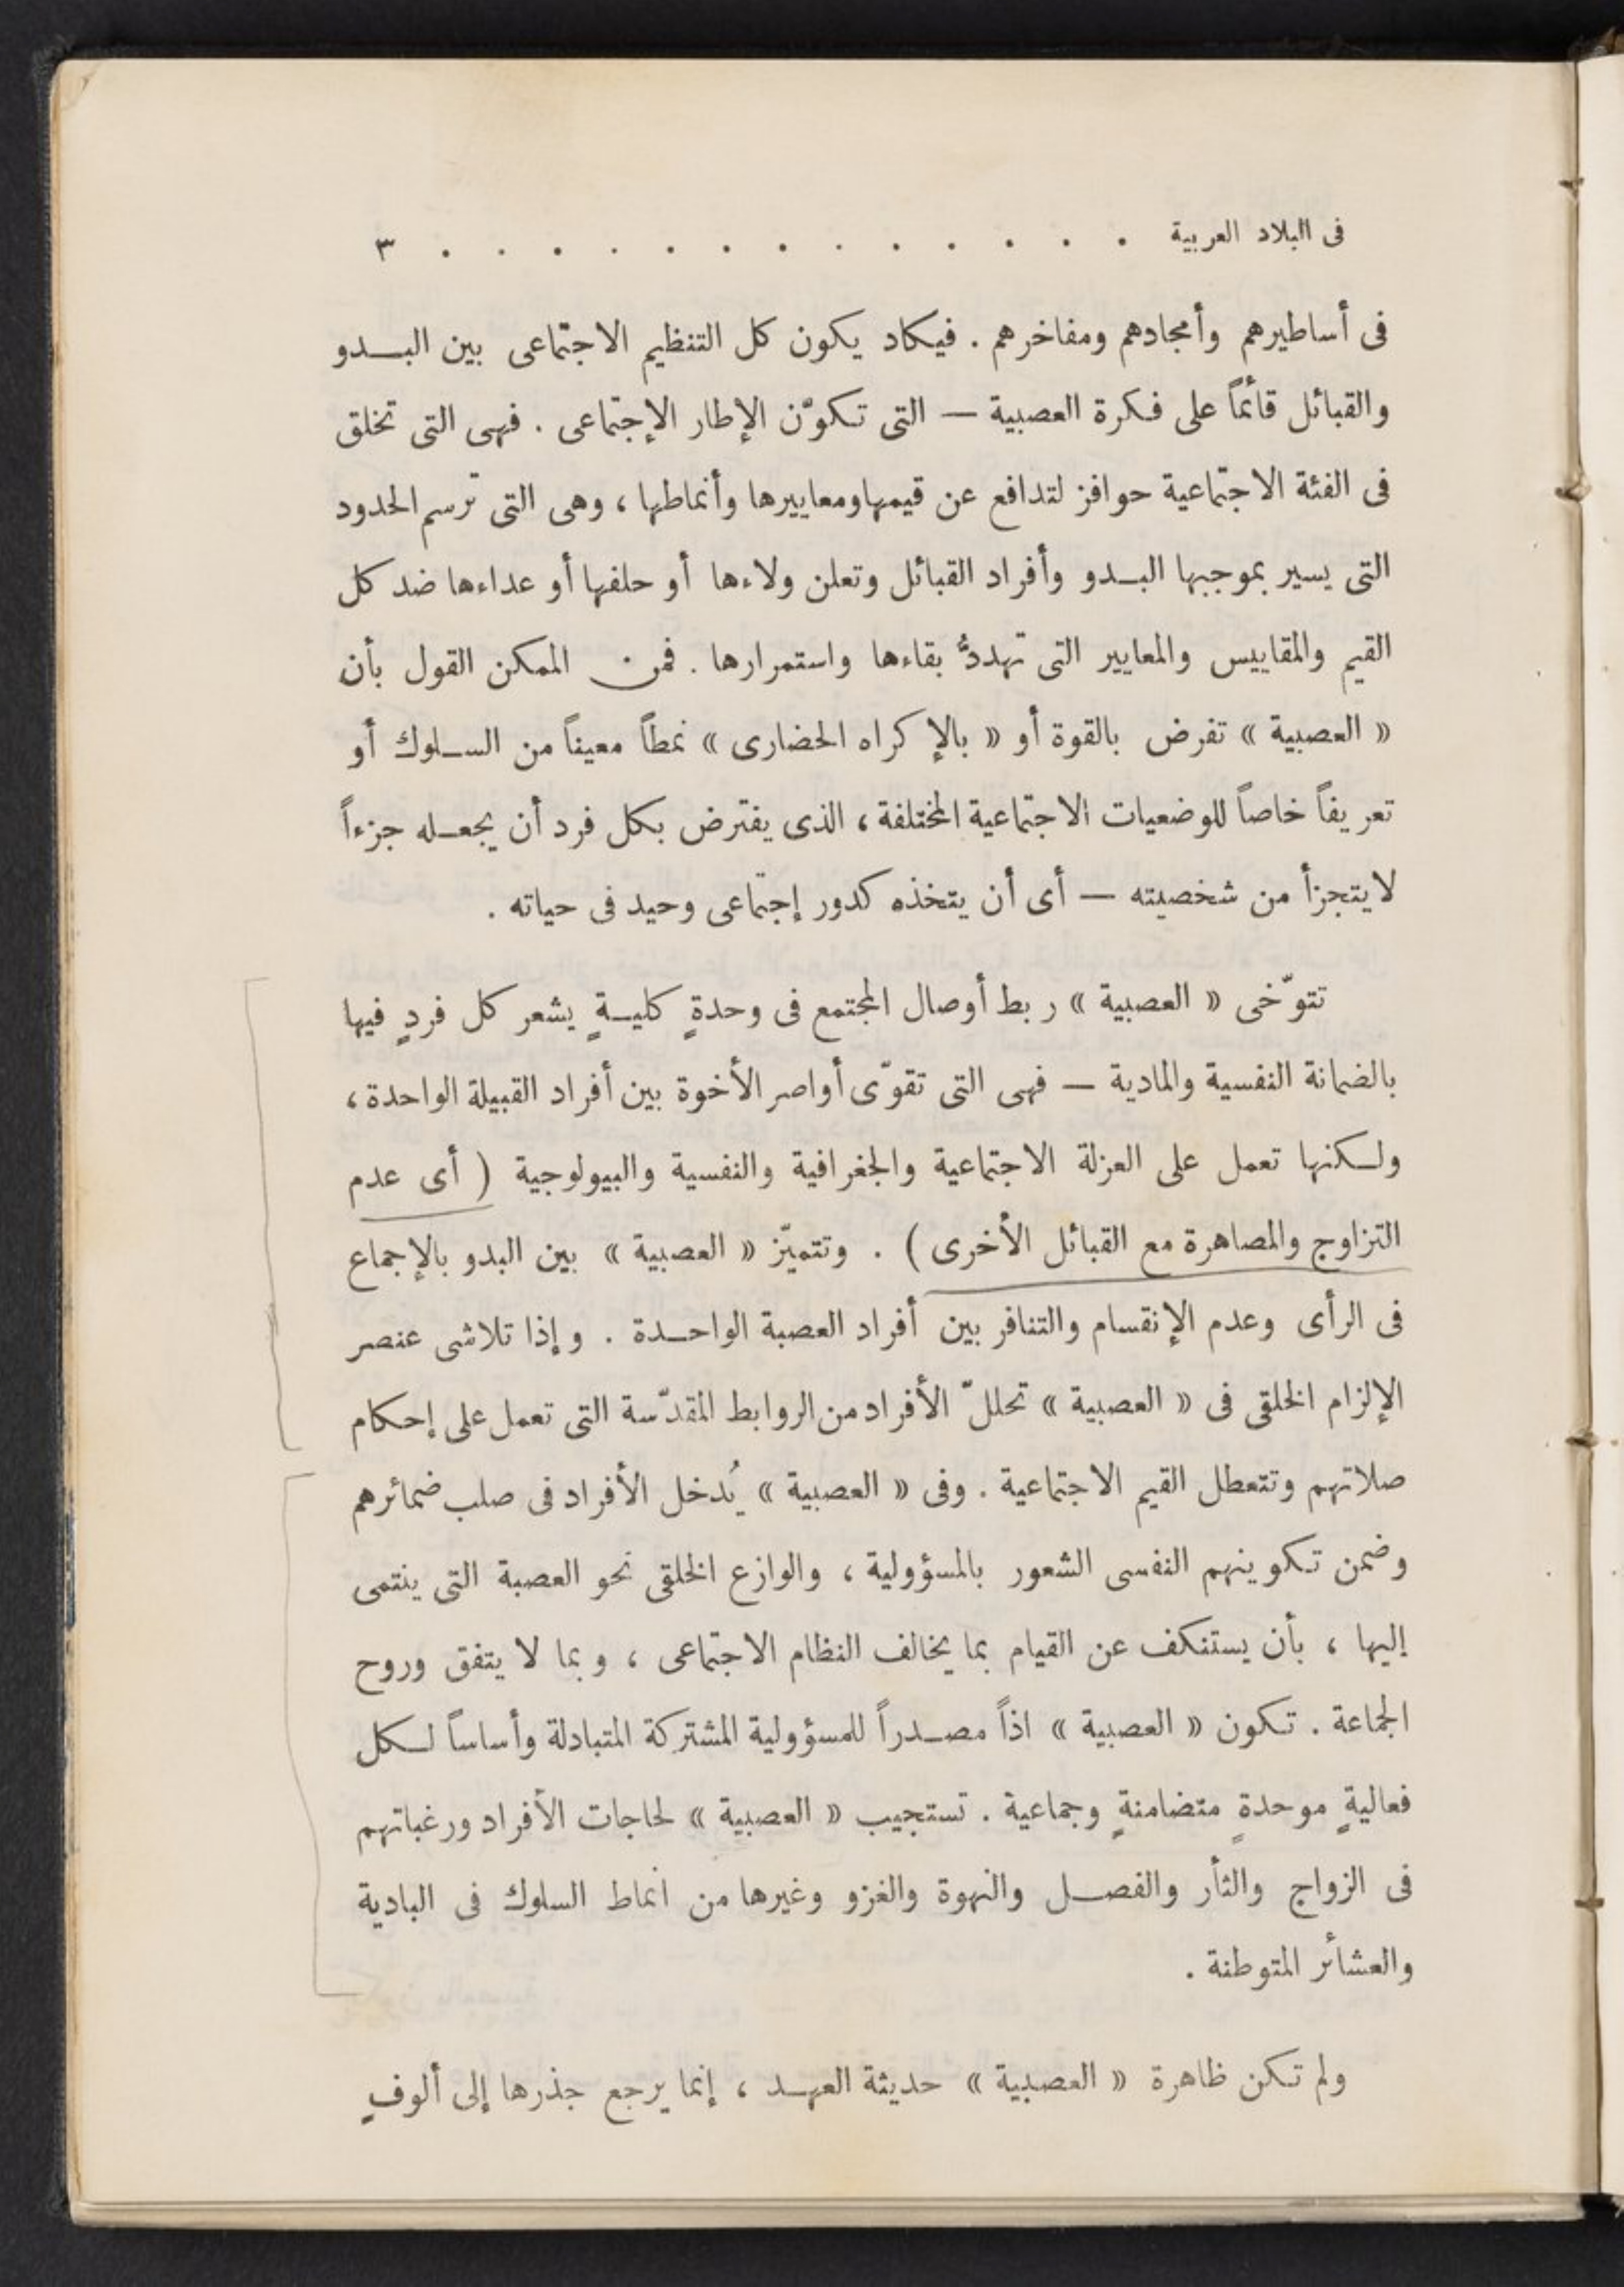 فى البلاد العربية . . . . . . . . . . . . . ٣
فى أساطيرهم وأمجادهم ومفاخرهم . فيكاد يكون كل التنظيم الاجتماعى بين البدو
والقبائل قائماً على فكرة العصبية — التى تكوّن الإطار الإجتماعى . فهى التى تخلق
فى الفئة الاجتماعية حوافز لتدافع عن قيمها ومعاييرها وأنماطها ، وهى التى ترسم الحدود
التى يسير بموجبها البدو وأفراد القبائل وتعلن ولاءها أو حلفها أو عداءها ضد كل
القيم والمقاييس والمعايير التى تهددُّ بقاءها واستمرارها . فمن الممكن القول بأن
« العصبية » تفرض بالقوة أو « بالإكراه الحضارى » نمطاً معيناً من السلوك أو
تعريفاً خاصاً للوضعيات الاجتماعية المختلفة ، الذى يفترض بكل فرد أن يجعله جزءاً
لا يتجزأ من شخصيته — أى أن يتخذه كدور إجتماعى وحيد فى حياته .
تتوّخى « العصبية » ربط أوصال المجتمع فى وحدةٍ كليةٍ يشعر كل فردٍ فيها
بالضمانة النفسية والمادية — فهى التى تقوّى أواصر الأخوة بين أفراد القبيلة الواحدة ،
ولكنها تعمل على العزلة الاجتماعية والجغرافية والنفسية والبيولوجية ( أى عدم
التزاوج والمصاهرة مع القبائل الأخرى ) . وتتميّز « العصبية » بين البدو بالإجماع
فى الرأى وعدم الإنقسام والتنافر بين أفراد العصبة الواحدة . وإذا تلاشى عنصر
الإلزام الخلقى فى « العصبية » تحللّ الأفراد من الروابط المقدّسة التى تعمل على إحكام
صلاتهم وتتعطل القيم الاجتماعية . وفى « العصبية » يُدخل الأفراد فى صلب ضمائرهم
وضمن تكوينهم النفسى الشعور بالمسؤولية ، والوازع الخلقى نحو العصبة التى ينتمى
إليها ، بأن يستنكف عن القيام بما يخالف النظام الاجتماعى ، وبما لا يتفق وروح
الجماعة . تكون « العصبية » اذاً مصدراً للمسؤولية المشتركة المتبادلة وأساساً لكل
فعاليةٍ موحدةٍ متضامنةٍ وجماعية . تستجيب « العصبية » لحاجات الأفراد ورغباتهم
فى الزواج والثأر والفصل والنهوة والغزو وغيرها من انماط السلوك فى البادية
والعشائر المتوطنة .
ولم تكن ظاهرة « العصبية » حديثة العهد ، إنما يرجع جذرها إلى ألوفٍ